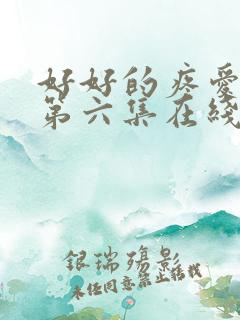 好好的疼爱
第六集在线
银瑞殇影
未经同意禁止转载